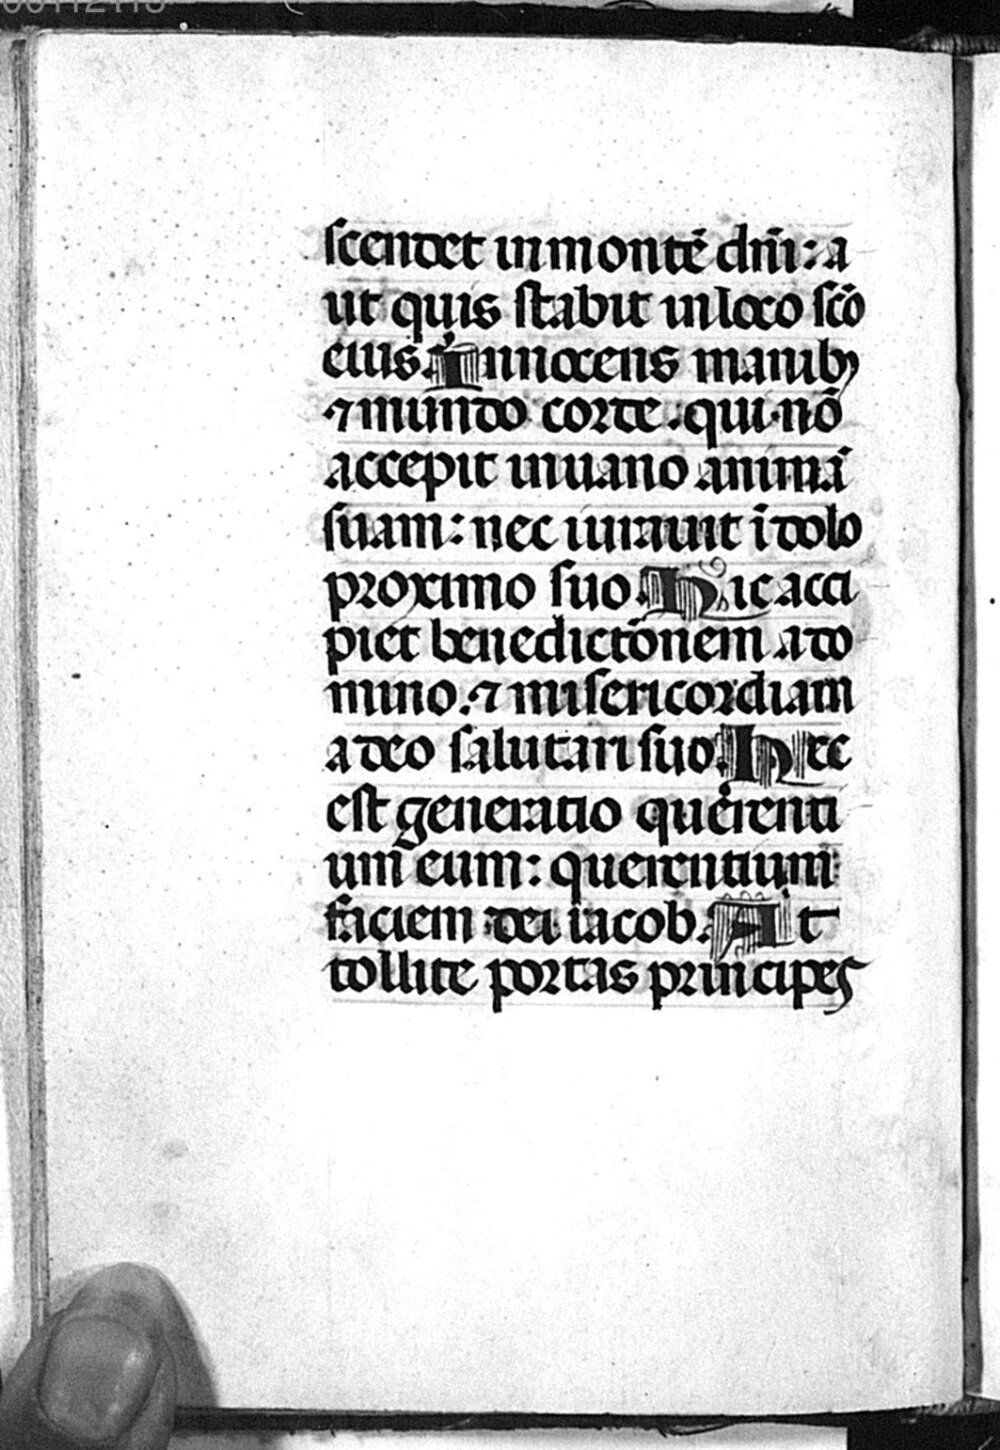 scendet in monte᷃ dn̄i: a
ut quis stabit in loco sc̄o
eius. Innocens manibꝫ
⁊ mundo corde. qui nō
accepit in uano animā
suam: nec iurauit ī dolo
proximo suo. Hic acci
piet benedictōnem a do
mino. ⁊ misericordiam
a deo salutari suo. Hec
est generatio querenti
um eum: querentium
faciem dei iacob. At
tollite portas principes